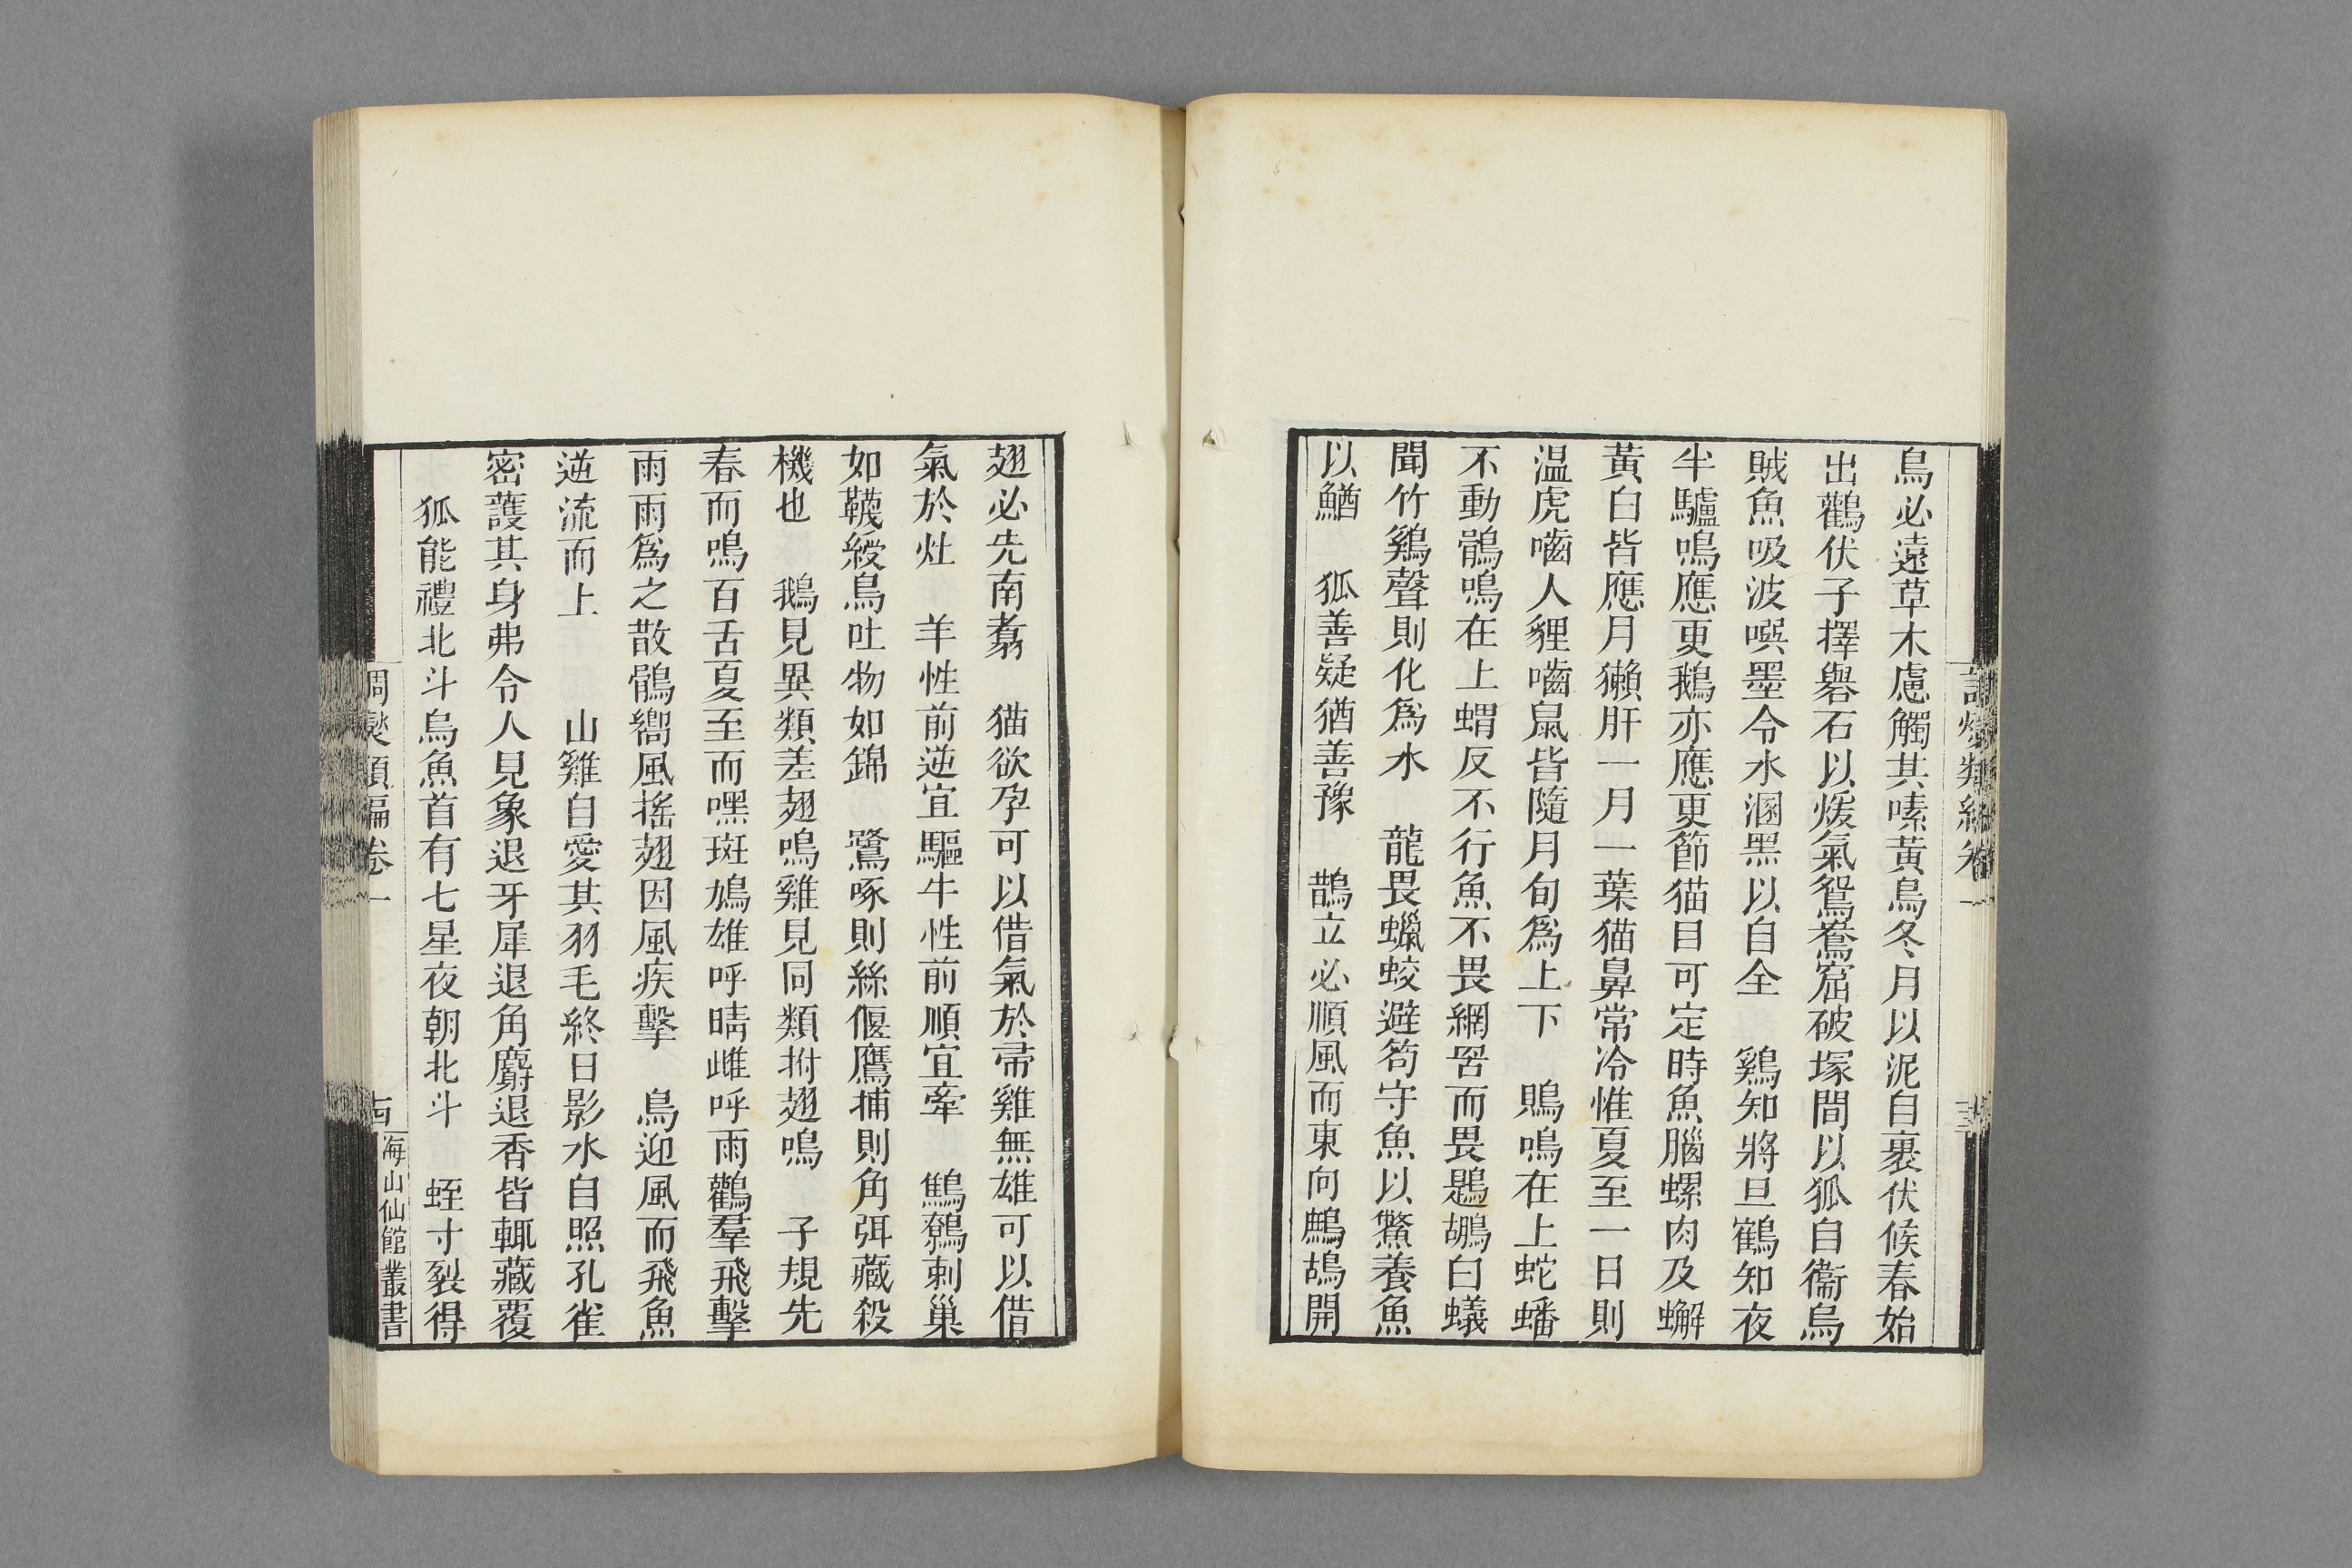 鳥必遠草木慮觸其嗉黃鳥冬月以泥自裹伏候春始
出鸛伏子擇礜石以煖氣鴛鴦窟破塚間以狐自衞烏
賊魚吸波噀墨令水溷黑以自全　鷄知將旦鶴知夜
半驢鳴應更鵝亦應更節猫目可定時魚腦螺肉及蠏
黃白皆應月獺肝一月一葉猫鼻常冷惟夏至一日則
温虎嚙人貍嚙鼠皆隨月旬爲上下　鴖鳴在上蛇蟠
不動鶻鳴在上蝟反不行魚不畏網罟而畏鶗鶘白蟻
聞竹鷄聲則化爲水　龍畏蠟蛟避笱守魚以鱉養魚
以鰌　狐善疑猶善豫　鵲立必順風而東向鷓鴣開
翅必先南翥　猫欲孕可以借氣於帚雞無雄可以借
氣於灶　羊性前逆宜驅牛性前順宜牽　鷦鷯刺巢
如韈綬鳥吐物如錦　鷺啄則絲偃鷹捕則角弭藏殺
機也　鵝見異類差翅鳴雞見同類拊翅鳴　子規先
春而鳴百舌夏至而嘿斑鳩雄呼晴雌呼雨鸛羣飛擊
雨雨爲之散鶻嚮風搖翅因風疾擊　鳥迎風而飛魚
逆流而上　山雞自愛其羽毛終日影水自照孔雀
密護其身弗令人見象退牙犀退角麝退香皆輒藏覆
狐能禮北斗烏魚首有七星夜朝北斗　蛭寸裂得
調燮類編卷一
海山仙館叢書